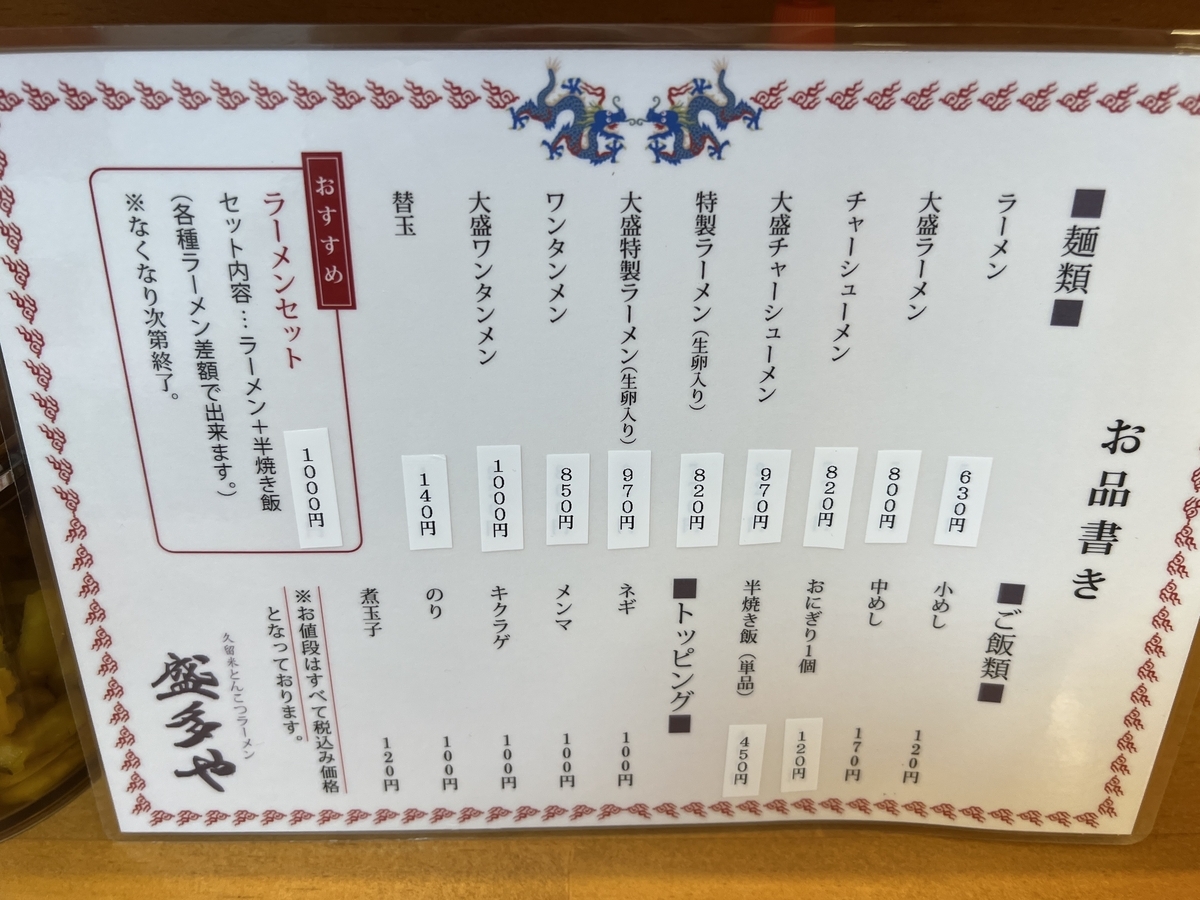 お品書き
■麺類■
ラーメン 630円
大盛ラーメン 800円
チャーシューメン 820円
大盛チャーシューメン 970円
特製ラーメン(生卵入り) 820円
大盛特製ラーメン(生卵入り) 970円
ワンタンメン 850円
大盛ワンタンメン 1000円
替玉 140円
おすすめ
ラーメンセット 1000円
セット内容…ラーメン+半焼き飯
(各種ラーメン差額で出来ます。)
※なくなり次第終了。
■ご飯類■
小めし 120円
中めし 170円
おにぎり1個 120円
半焼き飯(単品) 450円
■トッピング■
ネギ 100円
メンマ 100円
キクラゲ 100円
のり 100円
煮玉子 120円
※お値段はすべて税込み価格
となっております。
久留米とんこつラーメン
盛多や